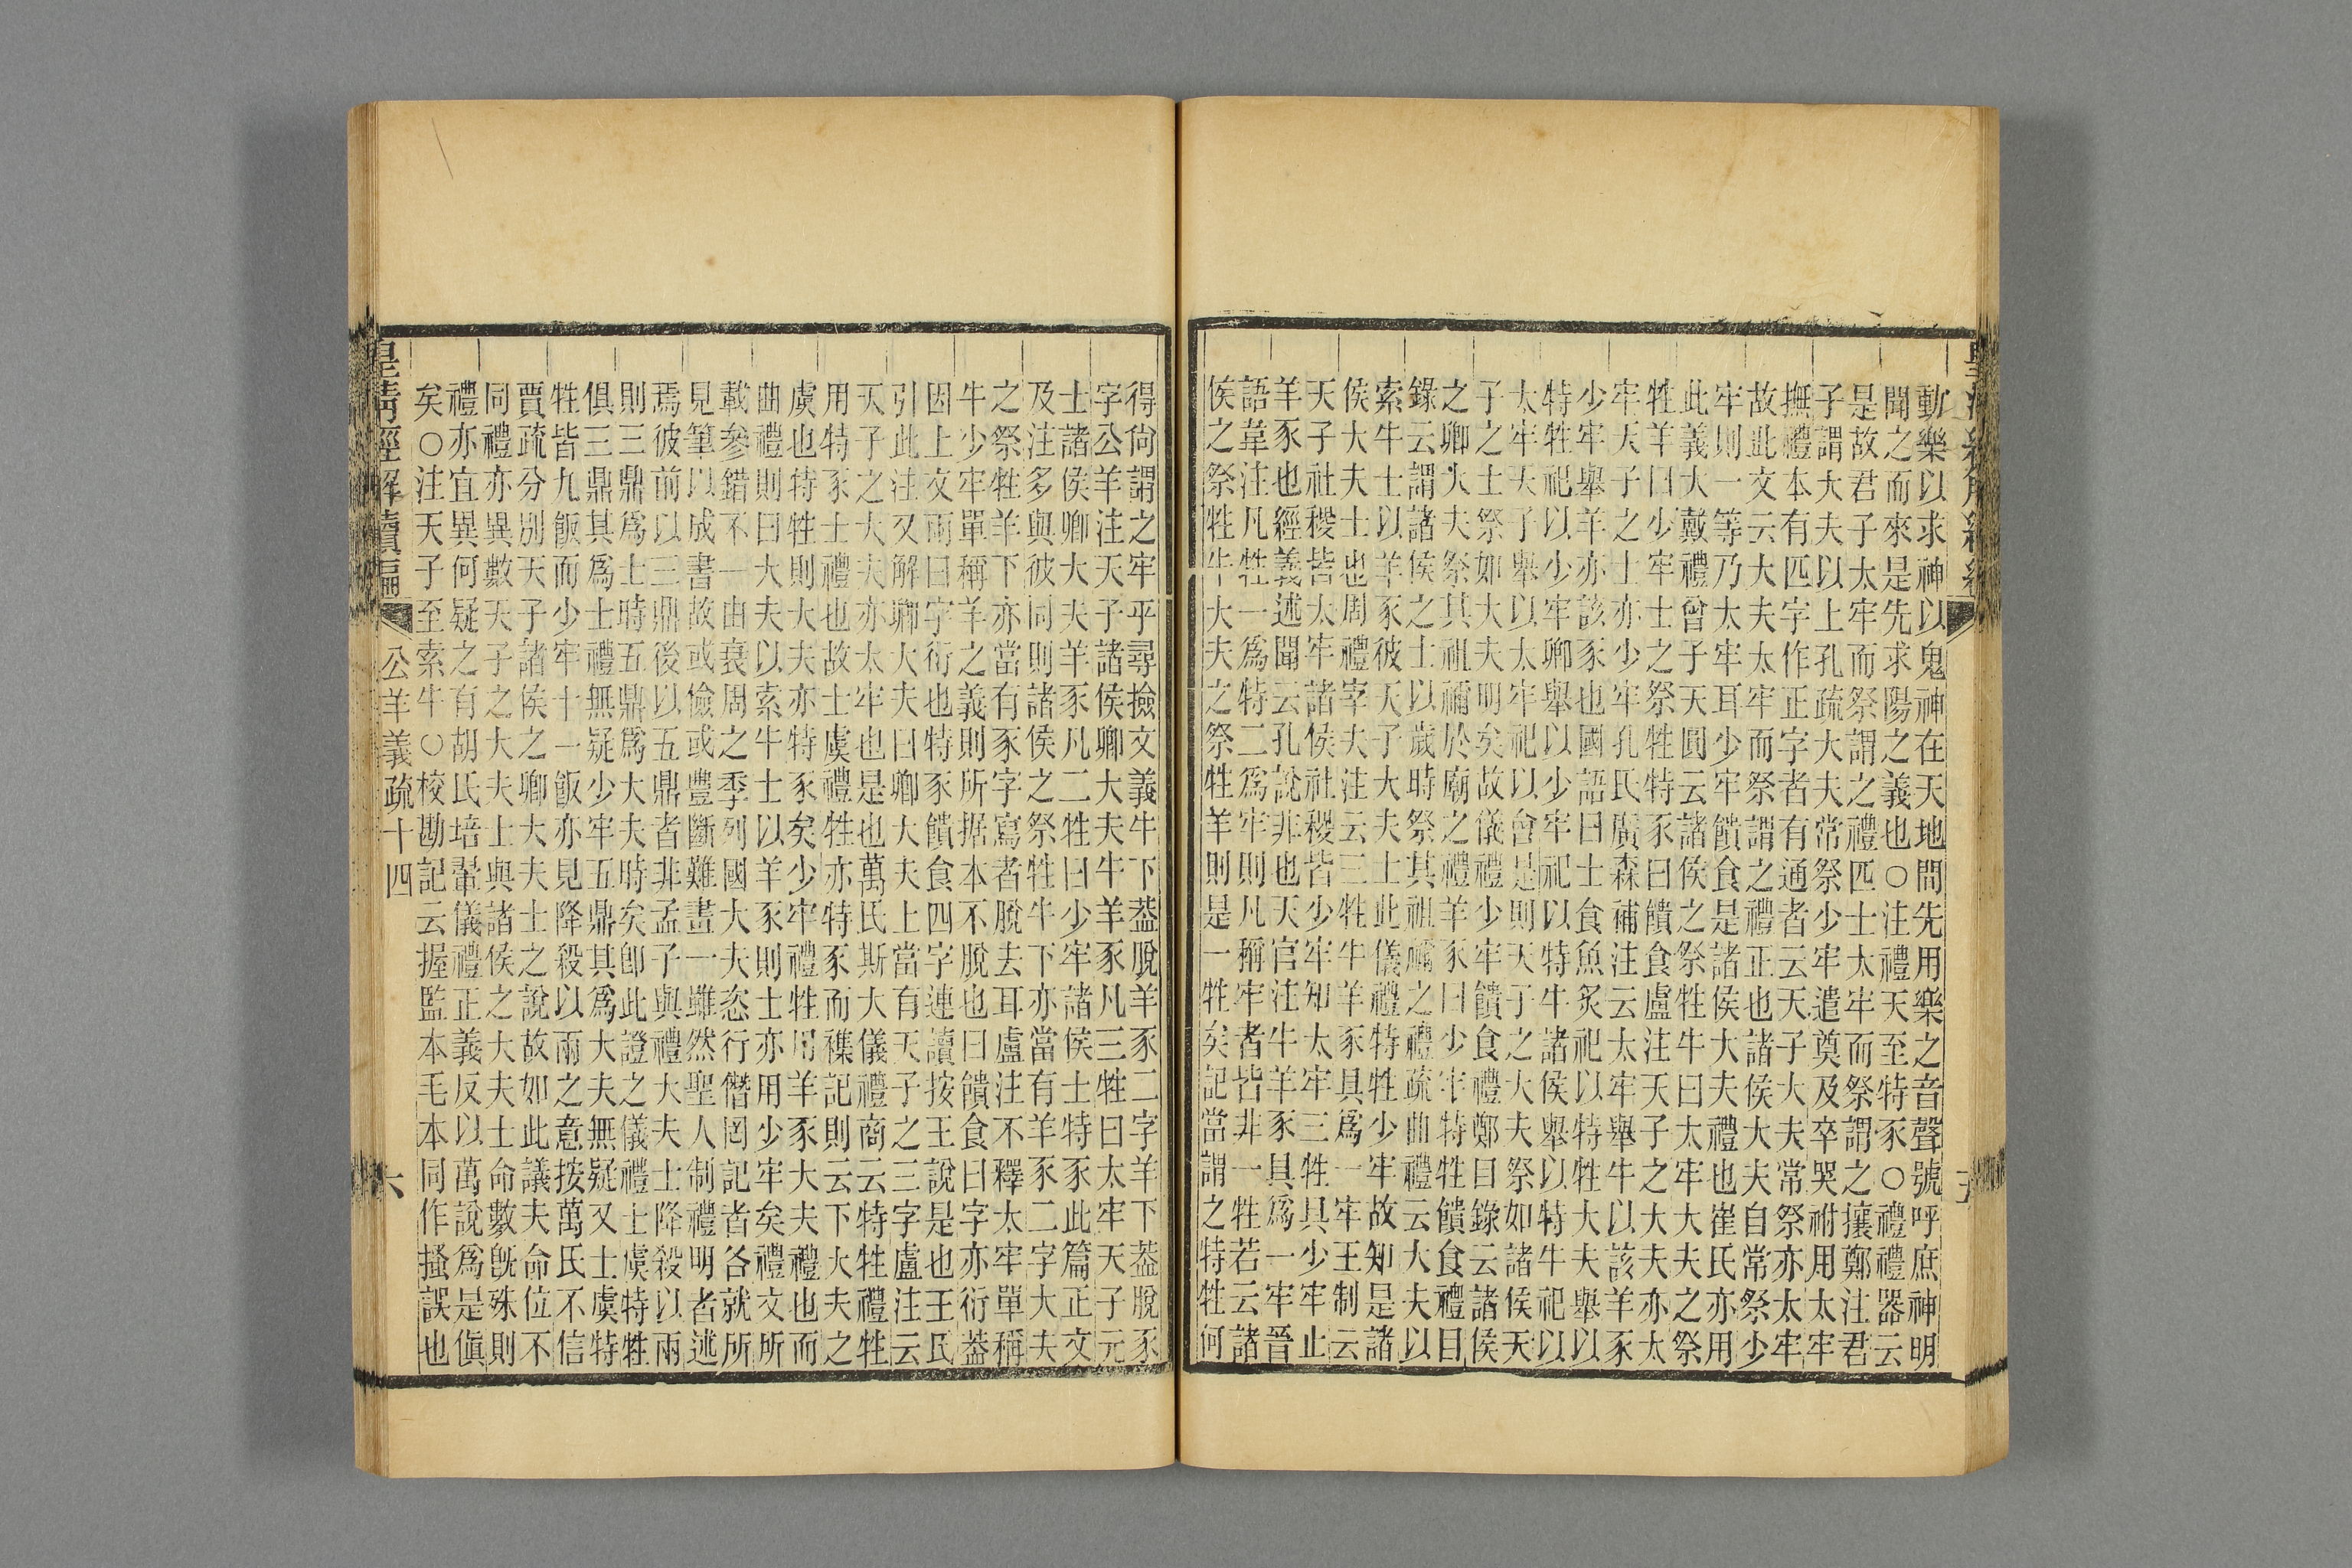 動樂以求神以鬼神在天地間先用樂之音聲號呼庶神明
聞之而來是先求陽之義也○注禮天至特豕○禮禮器云
是故君子太牢而祭謂之禮匹士太牢而祭謂之攘鄭注君
子謂大夫以上孔疏大夫常祭少牢遣奠及卒哭祔用太牢
撫禮本有匹字作正字者有通者云天子大夫常祭亦太牢
故此文云大夫太牢而祭謂之禮正也諸侯大夫自常祭少
牢則一等乃太牢耳少牢饋食是諸侯大夫禮也崔氏亦用
此義大戴禮曾子天圓云諸侯之祭牲牛曰太牢大夫之祭
牲羊曰少牢士之祭牲特豕曰饋食盧注天子之大夫亦太
牢天子之士亦少牢孔氏廣森補注云太牢舉牛以該羊豕
少牢舉羊亦該豕也國語曰士食魚炙祀以特牲大夫舉以
特牲祀以少牢卿舉以少牢祀以特牛諸侯舉以特牛祀以
太牢天子舉以太牢祀以會是則天子之大夫祭如諸侯天
子之士祭如大夫明矣故儀禮少牢饋食禮鄭曰錄云諸侯
之卿大夫祭其祖禰於廟之禮羊豕曰少牢特牲饋食禮目
錄云謂諸侯之士以歲時祭其祖禰之禮疏曲禮云大夫以
索牛士以羊豕彼天子大夫士此儀禮特牲少牢故知是諸
侯大夫士也周禮宰夫注云三牲牛羊豕具爲一牢王制云
天子社稷皆太牢諸侯社稷皆少牢知太牢三牲具少牢止
羊豕也經義述聞云孔說非也天官注牛羊豕具爲一牢晉
語韋注凡牲一爲特二爲牢則凡稱牢者皆非一牲若云諸
侯之祭牲牛大夫之祭牲羊則是一牲矣記當謂之特牲何
得尙謂之牢乎尋撿文義牛下葢脫羊豕二字羊下葢脫豕
字公羊注天子諸侯卿大夫牛羊豕凡三牲曰太牢天子元
士諸侯卿大夫羊豕凡二牲曰少牢諸侯士特豕此篇正文
及注多與彼同則諸侯之祭牲牛下亦當有羊豕二字大夫
之祭牲羊下亦當有豕字寫者脫去耳盧注不釋太牢單稱
牛少牢單稱羊之義則所据本不脫也曰饋食曰字亦衍葢
因上文兩曰字衍也特豕饋食四字連讀按王說是也王氏
引此注又解卿大夫曰卿大夫上當有天子之三字盧注云
天子之大夫亦太牢也是也萬氏斯大儀禮商云特牲禮牲
用特豕士禮也故士虞禮牲亦特豕而襍記則云下大夫之
虞也特牲則大夫亦特豕矣少牢禮牲用羊豕大夫禮也而
曲禮則曰大夫以索牛士以羊豕則士亦用少牢矣禮文所
載參錯不一由衰周之季列國大夫恣行僭罔記者各就所
見筆以成書故或儉或豐斷難畫一雖然聖人制禮明者述
焉彼前以三鼎後以五鼎者非孟子與禮大夫士降殺以兩
則三鼎爲士時五鼎爲大夫時矣卽此證之儀禮士虞特牲
俱三鼎其爲士禮無疑少牢五鼎其爲大夫無疑又士虞特
牲皆九飯而少牢十一飯亦見降殺以兩之意按萬氏不信
賈疏分別天子諸侯之卿大夫士之說故如此議夫命位不
同禮亦異數天子之大夫士與諸侯之大夫士命數旣殊則
禮亦宜異何疑之有胡氏培翬儀禮正義反以萬說爲是傎
矣○注天子至索牛○校勘記云握監本毛本同作搔誤也
皇清經解續編 公羊義疏十四 六